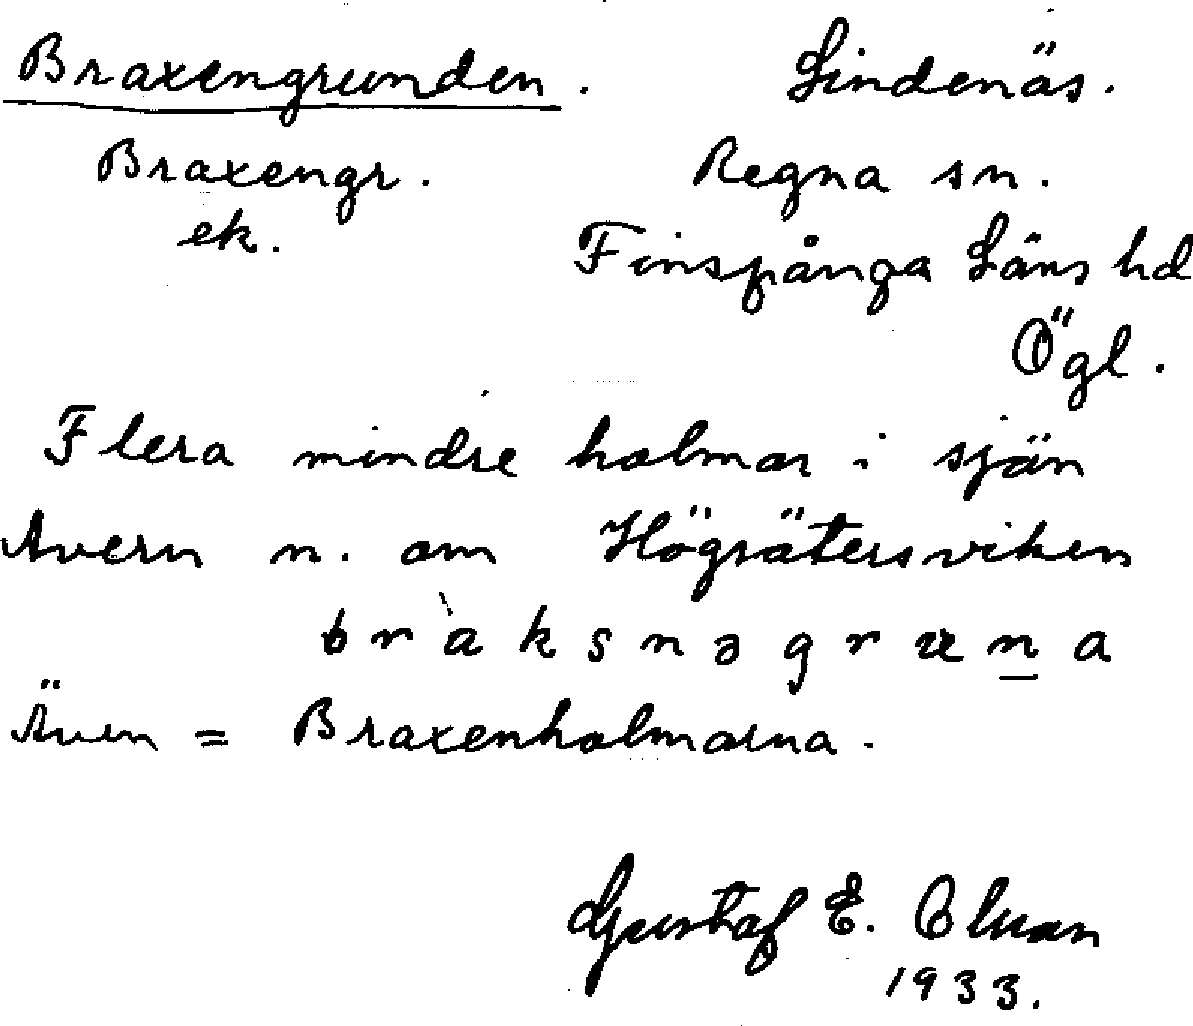 Braxengrunden. Lindenäs.
Braxengr. Regna sn.
ek. Finspånga Läns hd
Ögl.
Flera mindre holmar i sjön
Avern n. om Högsätersviken
bràksnəgruna
Även = Braxenholmarna.
Gustaf E. Olsson
1933.